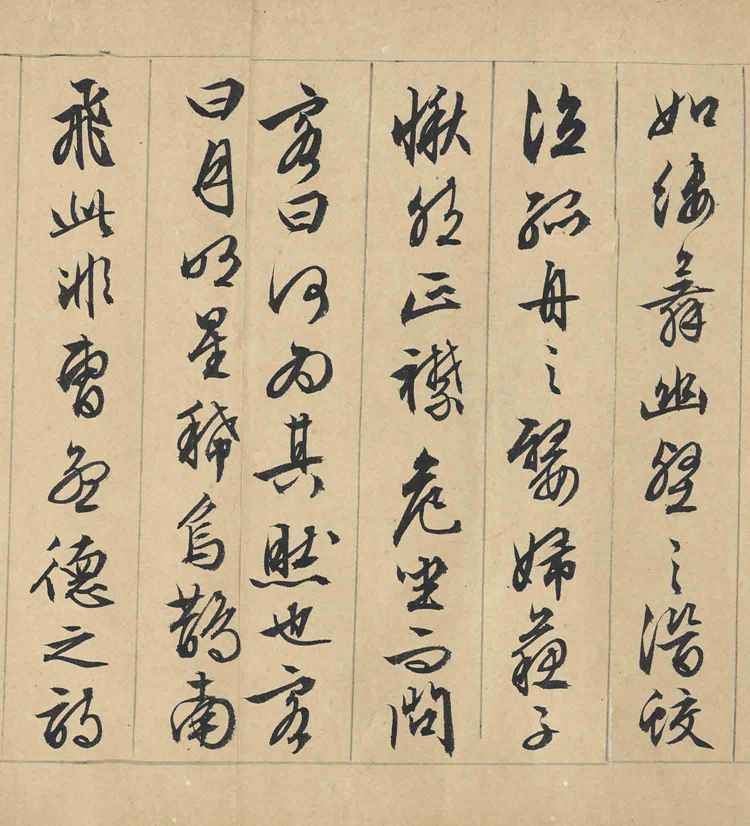 如縷舞幽壑之潛蛟
泣孤舟之嫠婦蘇子
愀然正襟危坐而問
客曰何為其然也客
曰月明星稀烏鵲南
飛此非曹孟德之詩